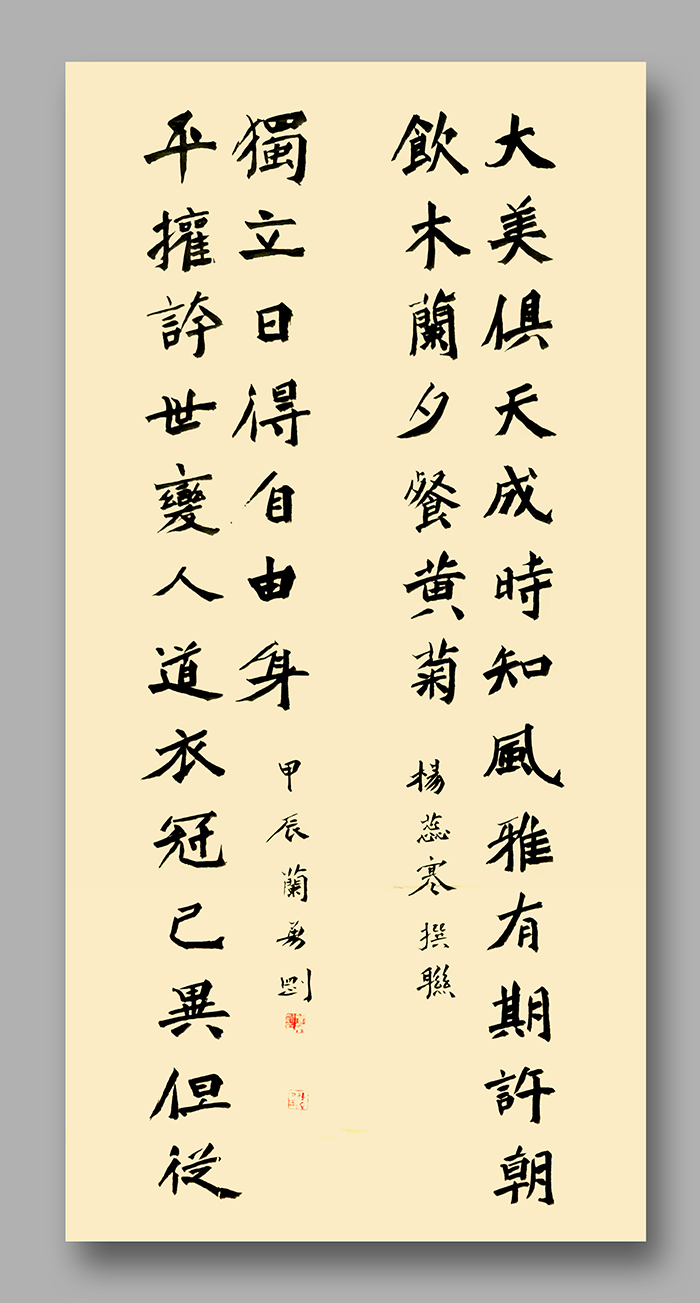 大美俱天成時知風雅有期許朝
飲木蘭夕餐黄菊
楊蕊寒撰聯
平權世變人道衣冠已異但從
獨立日得自由身
甲辰蘭